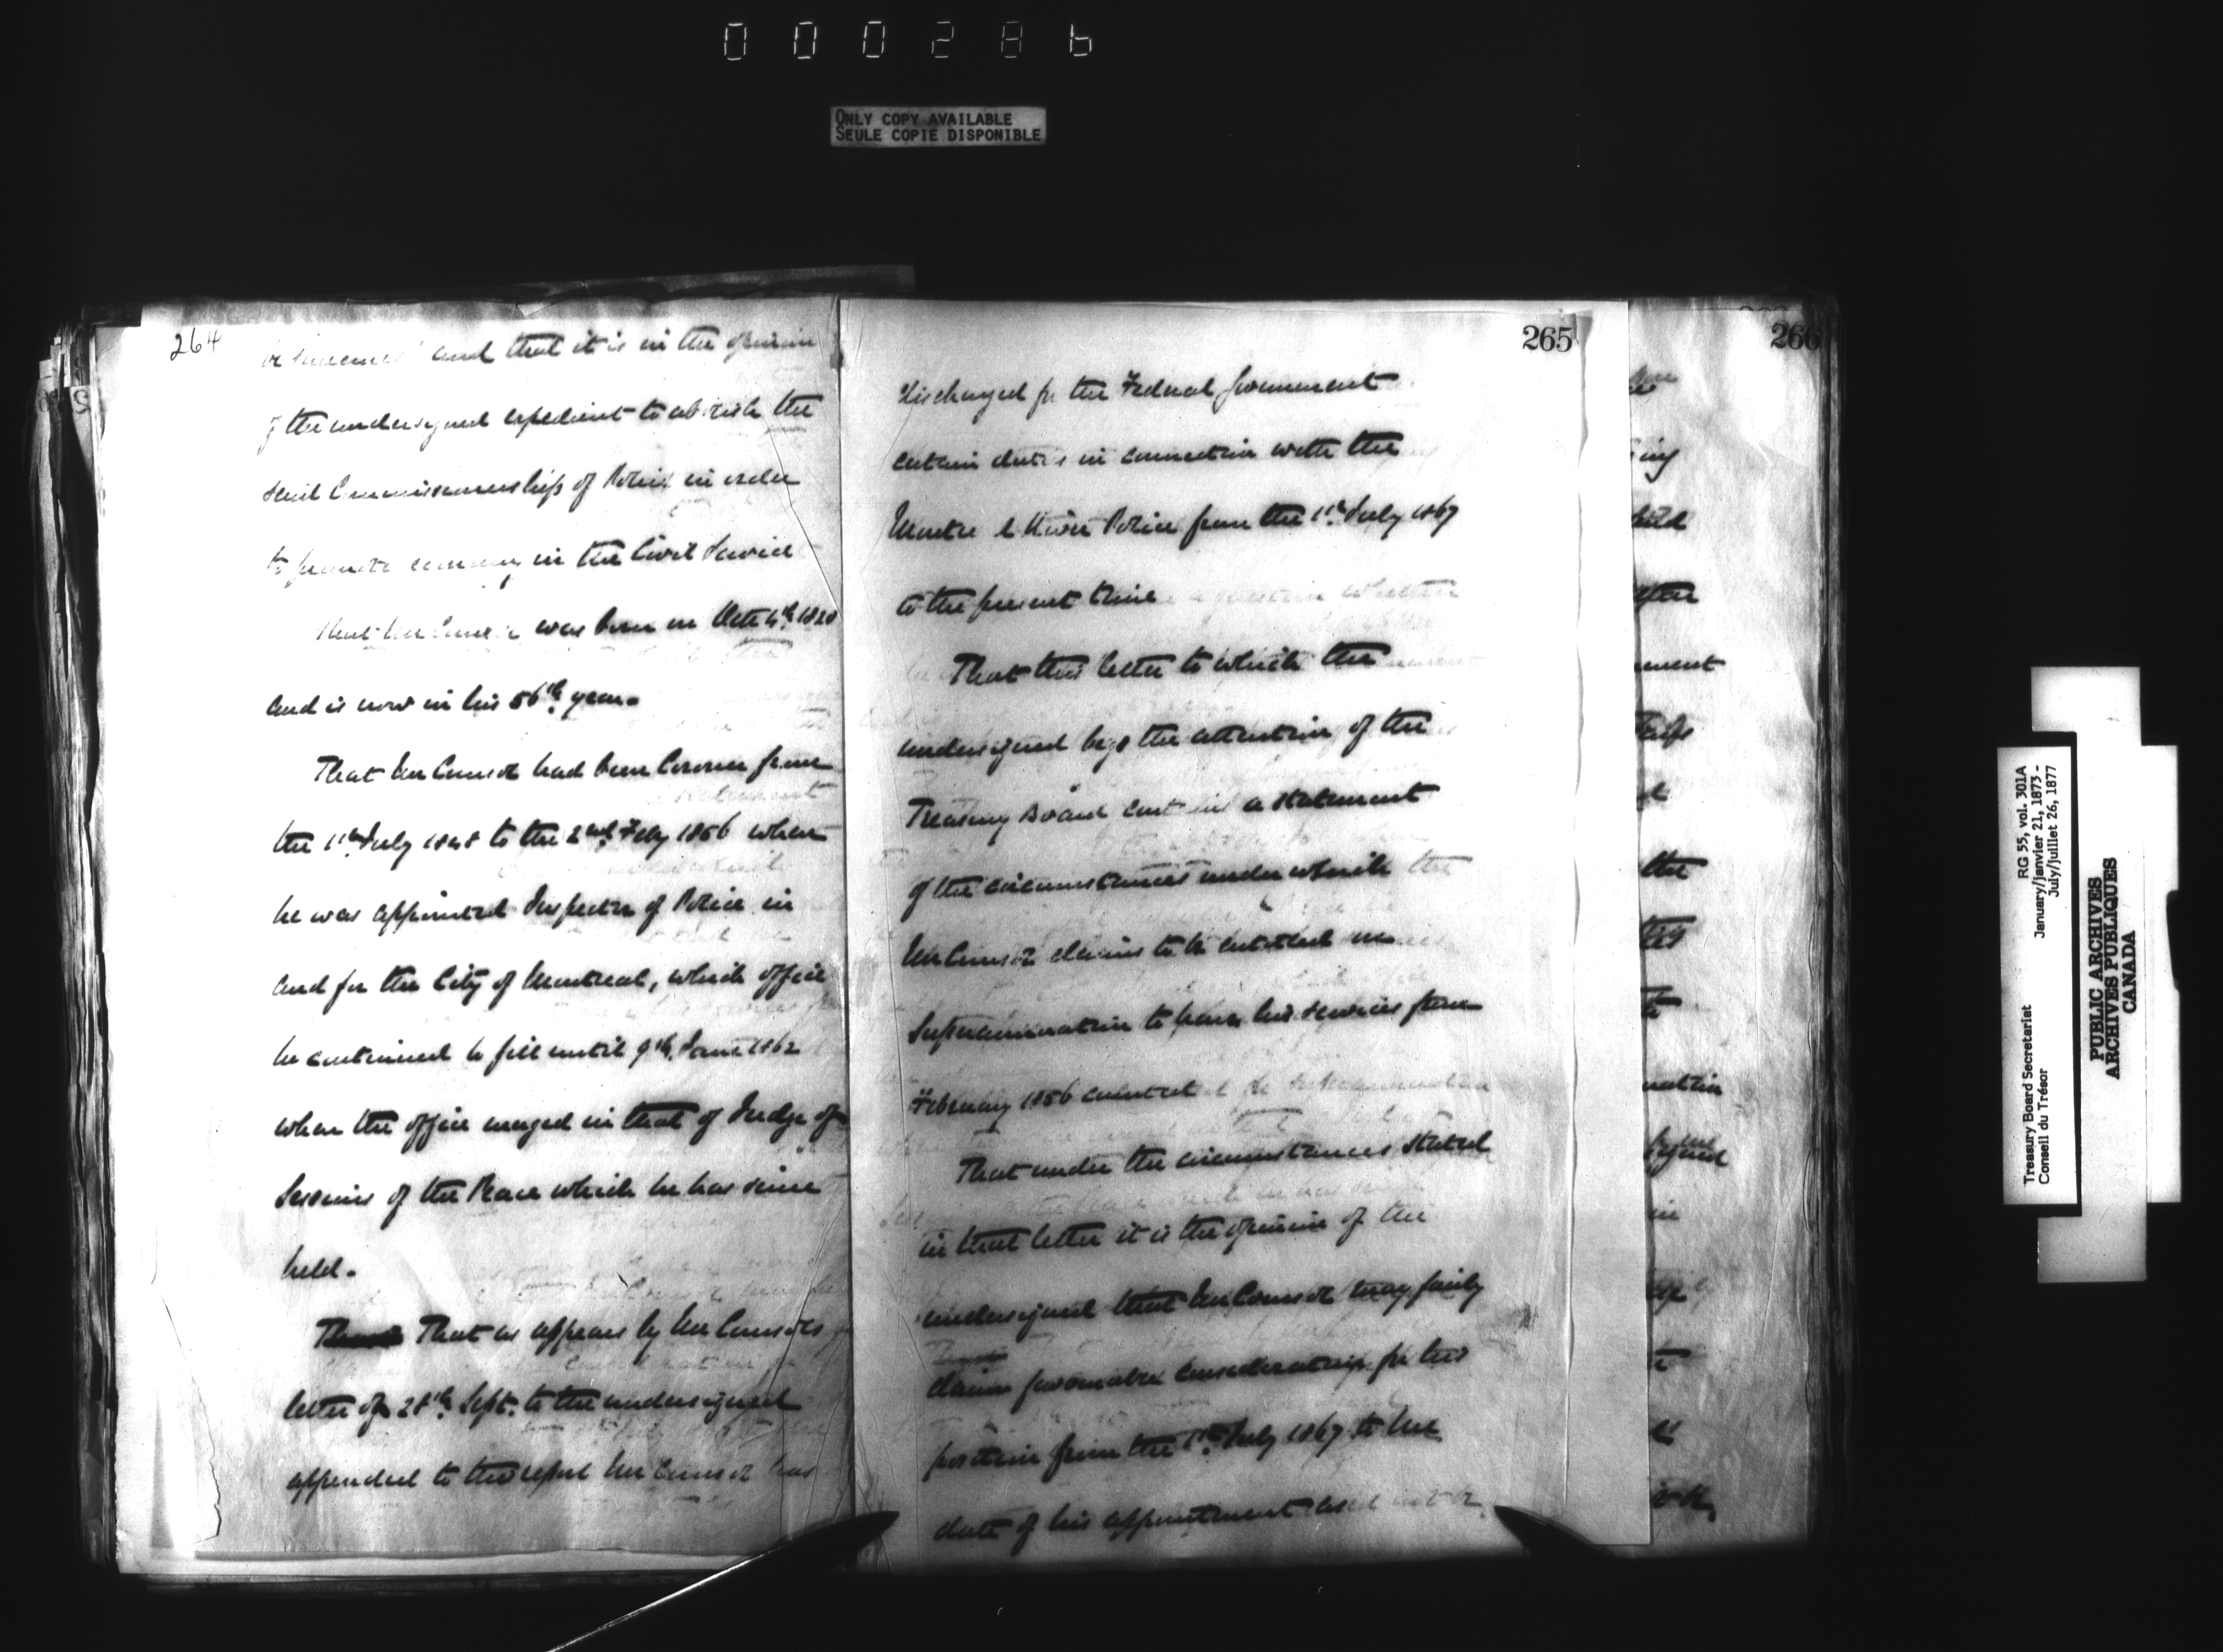 000286
ONLY COPY AVAILABLE
SEULE COPIE DISPONIBLE
264
and that it is in the opinion
of the undersigned expedient to abolish the
said Commissionership of Police in order
to promote economy in the Civil Service
That Mr Coursol was born on Octr 4th 1820
and is now in his 56th year.
That Mr Coursol had been Coroner from
the 1st July 1848 to the 2nd Feby 1856 when
he was appointed Inspector of Police in
and for the City of Montreal, which office
he continued to fill until 9th June 1862
when the office merged in that of Judge of
Sessions of the Peace which he has since
held.
That as appears by Mr Coursol's
letter of 28th Sept. to the undersigned
appended to this report Mr Coursol has
265
discharged for the Federal Government
certain duties in connection with the
Montreal River Police from the 1st July 1867
to the present time
That this letter to which the
undersigned begs the attention of the
Treasury Board contains a statement
of the circumstances under which
Mr Coursol claims to be entitled in
Superannuation to have his services from
February 1856 counted
That under the circumstances stated
in that letter it is the opinion of the
undersigned that Mr Coursol may fairly
claim favourable consideration for his
position from the 1st July 1867 to the
date of his appointment
266
ment
the
Treasury Board Secretariat
Conseil du Trésor
RG 55, vol. 301A
January/janvier 21, 1873 -
July/juillet 26, 1877
PUBLIC ARCHIVES
ARCHIVES PUBLIQUES
CANADA